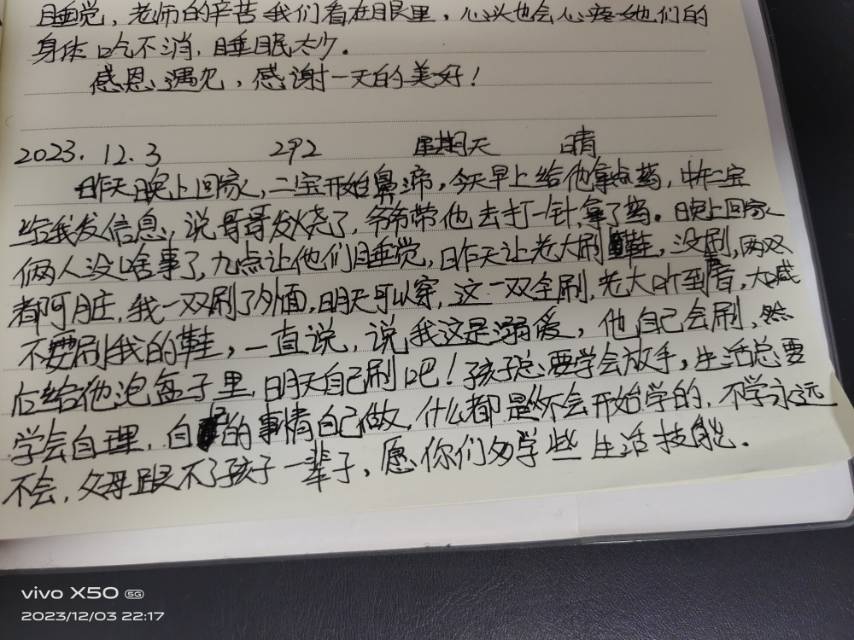 睡觉，老师的辛苦我们看在眼里，心头也会心疼她们的
身体吃不消，睡眠太少。
感恩遇见，感谢一天的美好！
2023.12.3 292 星期天 晴
昨天晚上回家，二宝开始鼻涕，今天早上给他拿点药，中午二宝
给我发信息，说哥哥发烧了，爷爷带他去打一针，拿了药。晚上回家
俩人没啥事了，九点让他们睡觉，昨天让老大刷鞋，没刷，两双
都阿脏，我一双刷了外面，明天可以穿，这一双全刷，老大听到着，大喊
不要刷我的鞋，一直说，说我这是溺爱，他自己会刷，然
后给他泡盆子里，明天自己刷吧！孩子总要学会放手，生活总要
学会自理，自己的事情自己做，什么都是从不会开始学的，不学永远
不会，父母跟不了孩子一辈子，愿你们多学些生活技能。
vivo X50 5G
2023/12/03 22:17